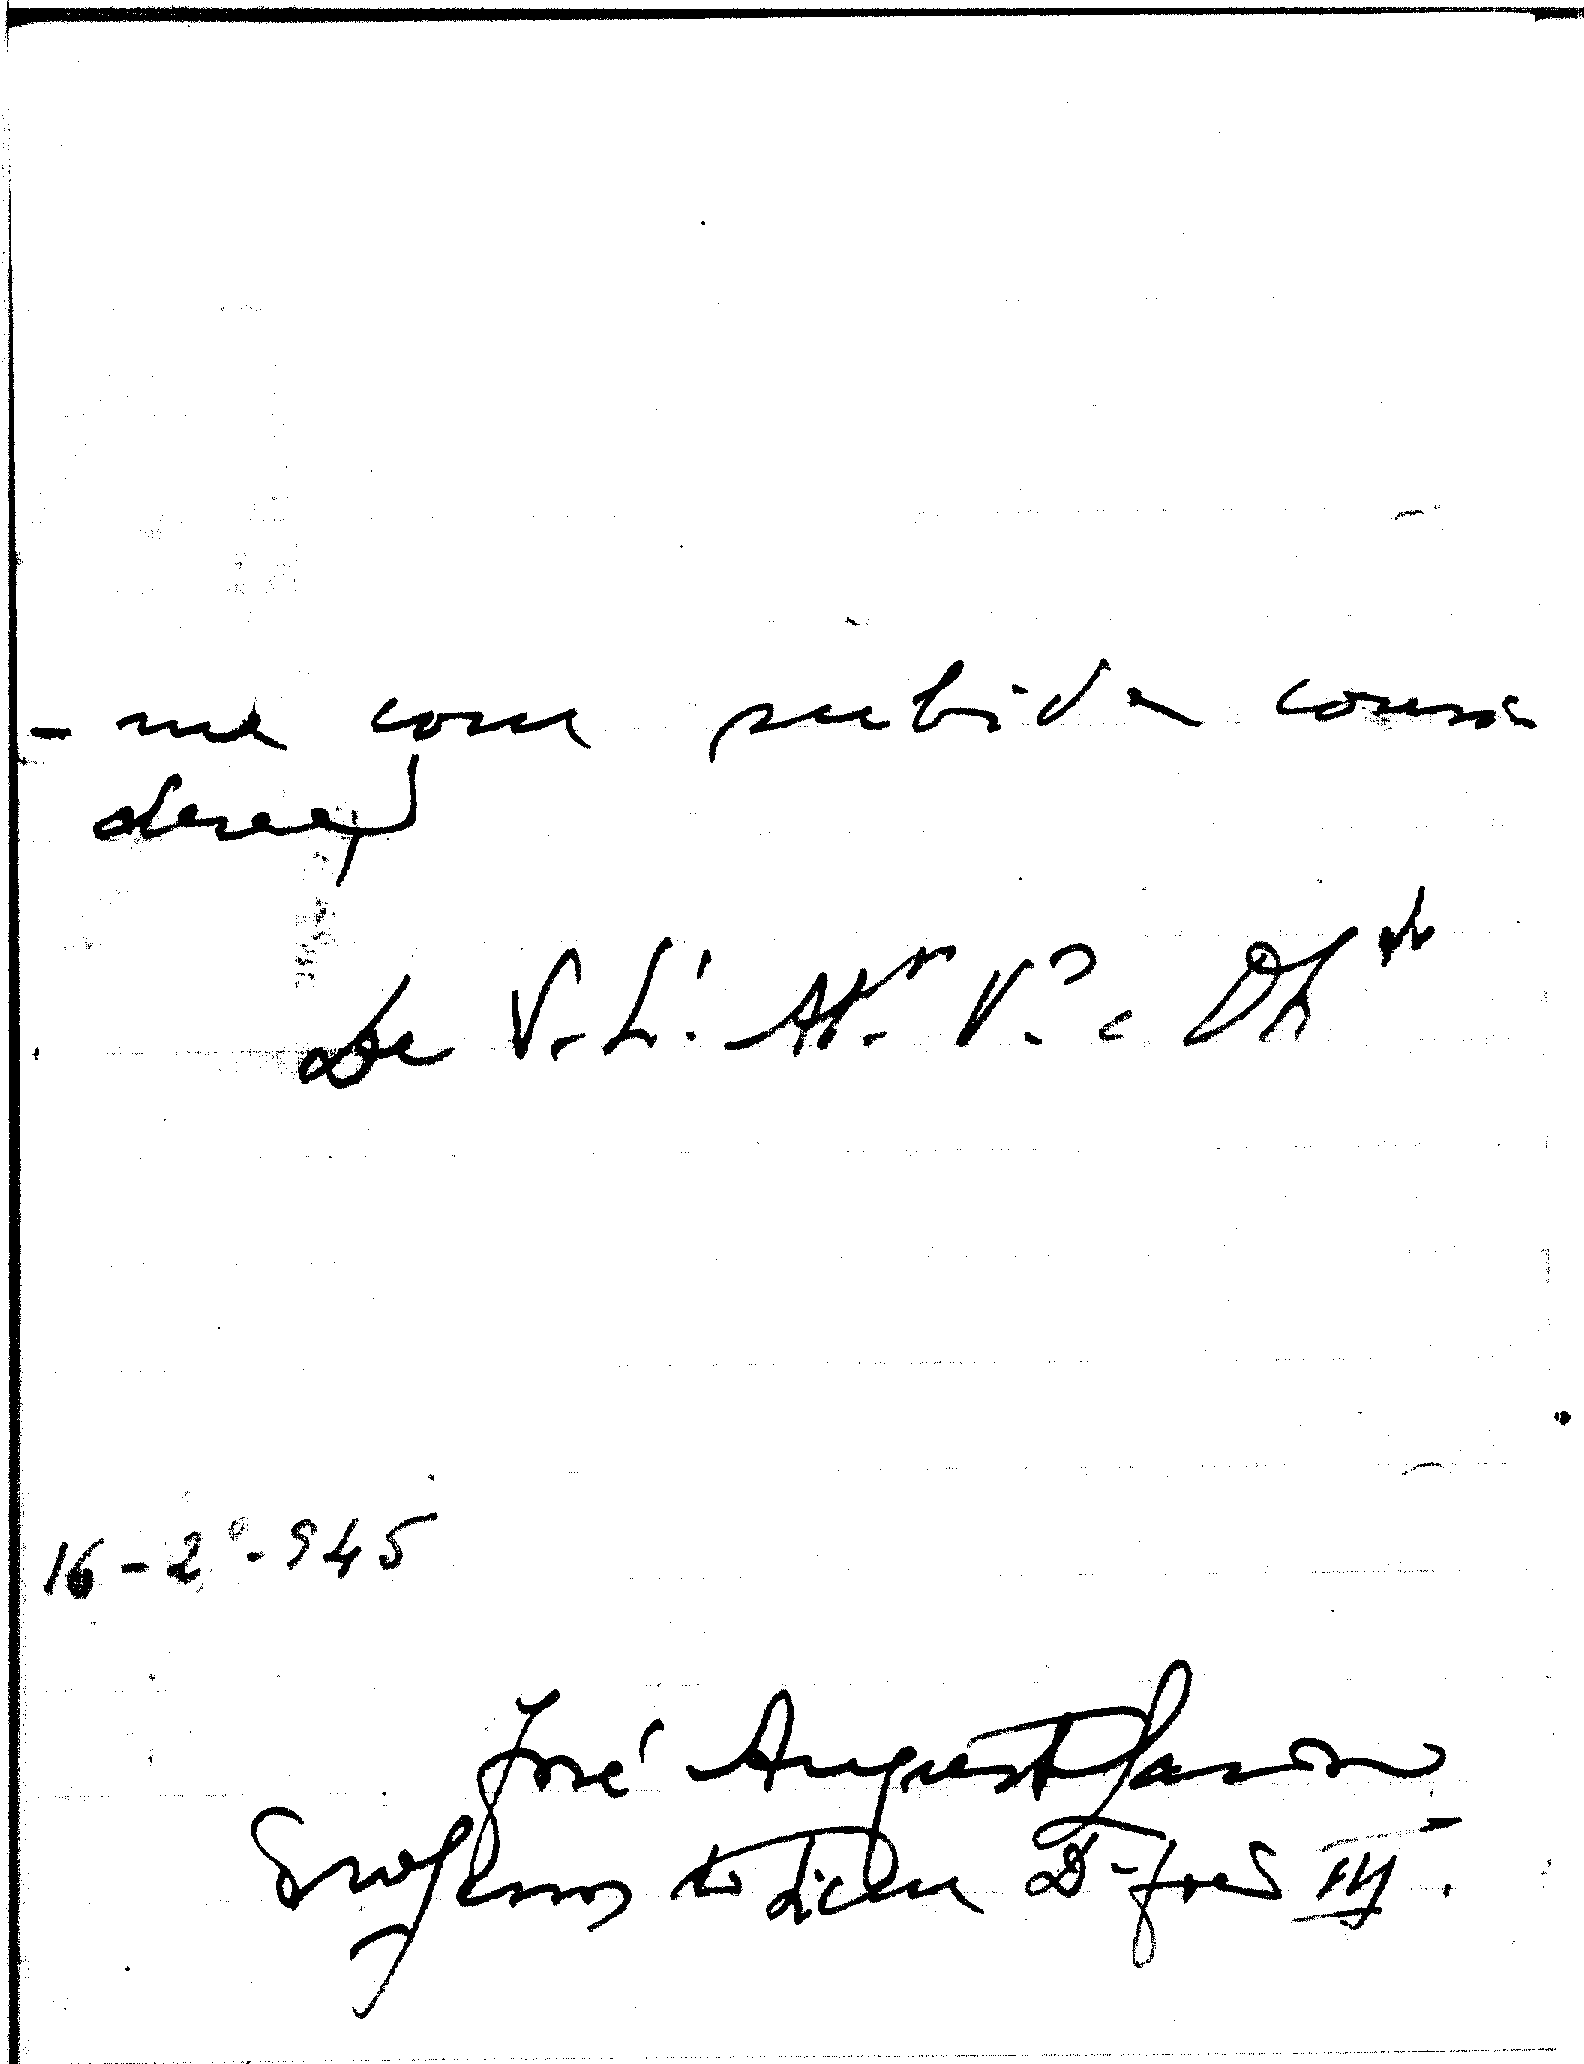 -me com subida consi
deração
De V. Ex.ª At.º V.or e
16-2º-945
José Augusto
Professor do Liceu D. João III.